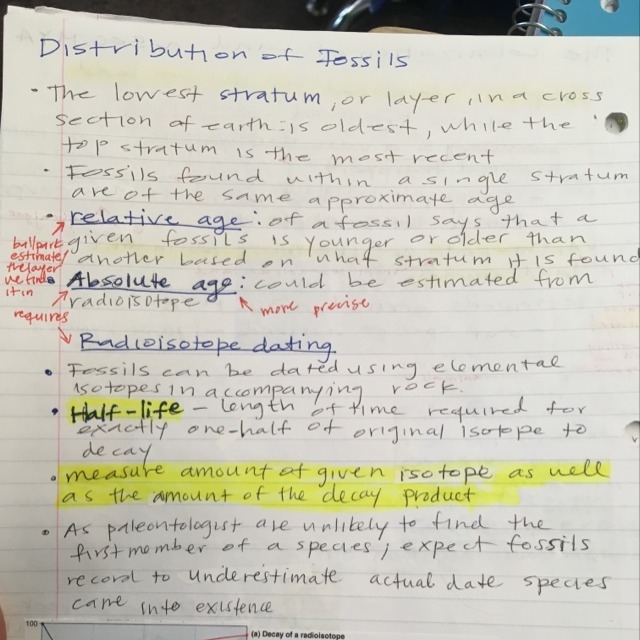 Distribution of Fossils
• The lowest stratum, or layer, in a cross
section of earth is oldest, while the
top stratum is the most recent
• Fossils found within a single stratum
are of the same approximate age
• relative age: of a fossil says that a
given fossils is younger or older than
another based on what stratum it is found
ballpark
estimate/
the layer
we finds
it in
• Absolute age: could be estimated from
radioisotope
more precise
requires
Radioisotope dating
• Fossils can be dated using elemental
isotopes in accompanying rock.
• Half-life – length of time required for
exactly one-half of original isotope to
decay
• measure amount of given isotope as well
as the amount of the decay product
• As paleontologist are unlikely to find the
first member of a species; expect fossils
record to underestimate actual date species
came into existence
100
(a) Decay of a radioisotope